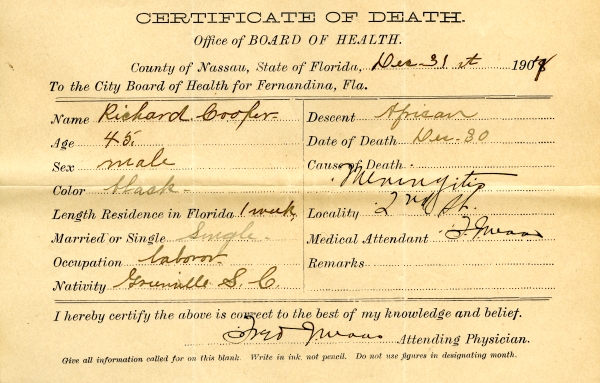 CERTIFICATE OF DEATH.
Office of BOARD OF HEALTH.
County of Nassau, State of Florida, Dec 31 st 190
To the City Board of Health for Fernandina, Fla.
Name Richard Cooper
Age 45
Sex male
Color black
Length Residence in Florida 1 week
Married or Single Single
Occupation Laboror
Nativity Grenville S. C.
Descent African
Date of Death Dec 30
Cause of Death
Meningitis
Locality 2nd St.
Medical Attendant
Remarks
I hereby certify the above is correct to the best of my knowledge and belief.
Attending Physician.
Give all information called for on this blank. Write in ink, not pencil. Do not use figures in designating month.